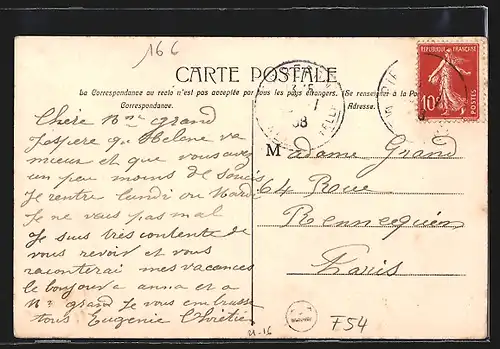 166
CARTE POSTALE
La Correspondance au recto n'est pas acceptée par tous les pays étrangers. (Se renseigner à la Po
Correspondance.
Adresse.
REPUBLIQUE FRANÇAISE
10c
POSTES
08
Chère Mme grand
J'espère que Hélène va
mieux et que vous avez
un peu moins de soucis
Je rentre lundi ou Mardi
Je ne vais pas mal
Je suis très contente de
vous revoir et vous
raconterai mes vacances
le bonjour a anna et a
Mr grand Je vous embrasse
tous Eugenie Chrétien
Madame Grand
64 Rue
Rennequin
Paris
21-16
F54